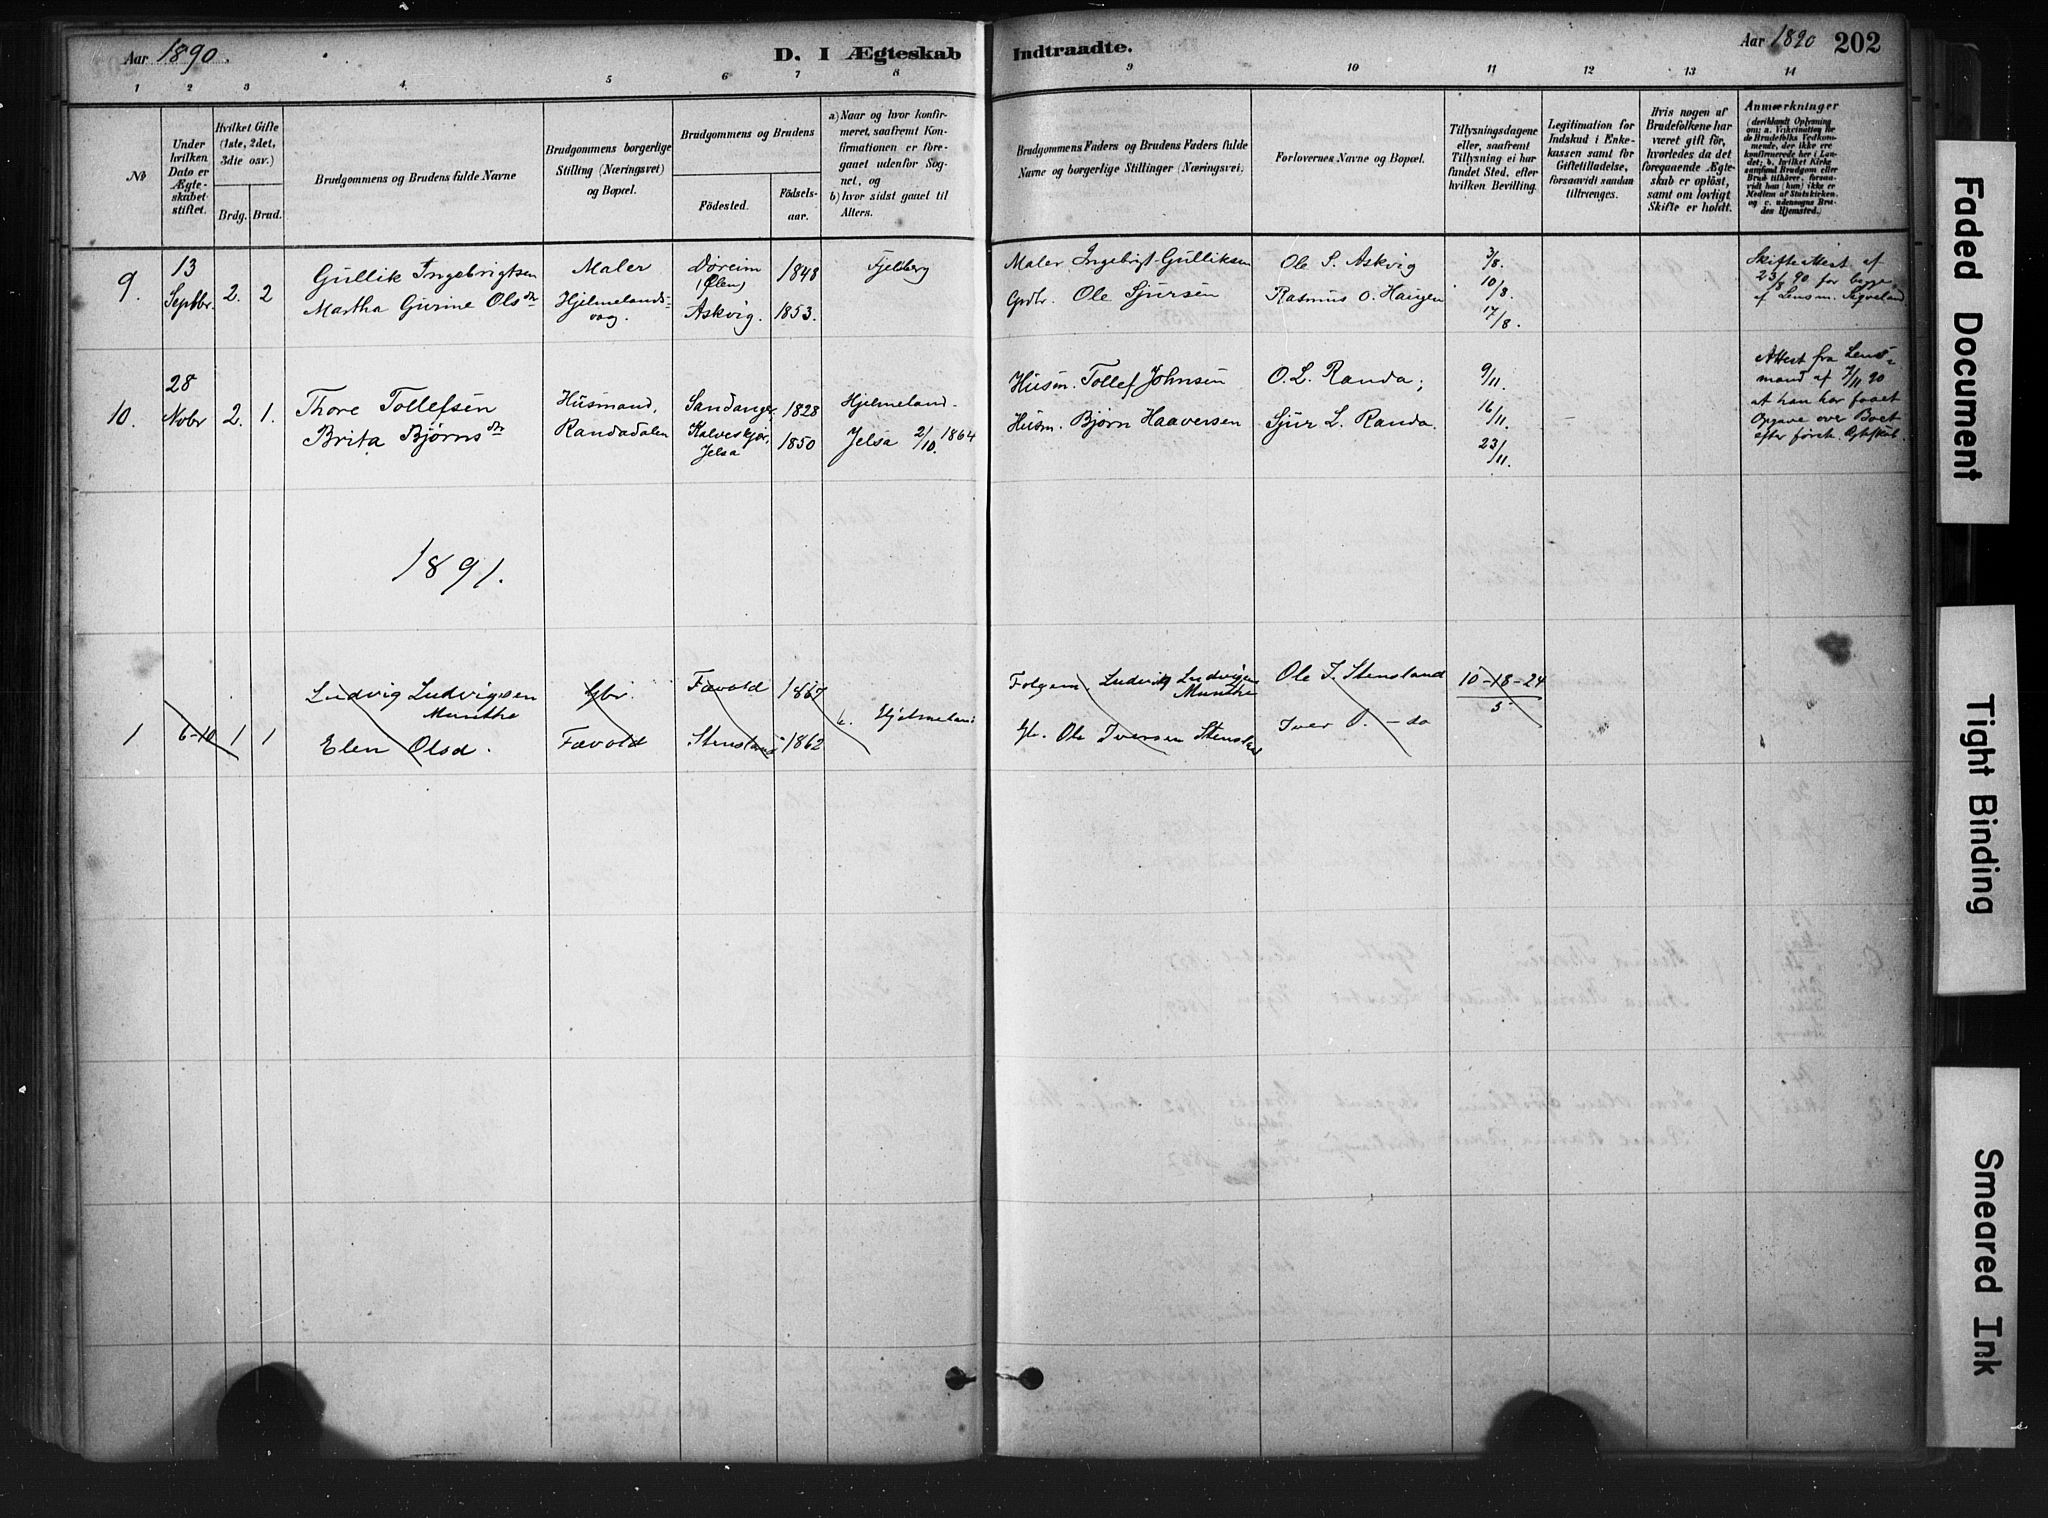 Aar 1890.
D. I Ægteskab
Indtraadte.
Aar 1890
202
1 2 3 4 5 6 7 8 9 10 11 12 13 14
No
Under hvilken Dato er Ægteskabet stiftet.
Hvilket Gifte (1ste, 2det, 3die osv.)
Brdg. Brud.
Brudgommens og Brudens fulde Navne
Brudgommens borgerlige Stilling (Næringsvei) og Bopæl.
Brudgommens og Brudens
Födested.
Födselsaar.
a) Naar og hvor konfirmeret, saafremt Konfirmationen er foregaaet udenfor Sognet, og
b) hvor sidst gaaet til Alters.
Brudgommens Faders og Brudens Faders fulde Navne og borgerlige Stillinger (Næringsvei)
Forlovernes Navne og Bopæl.
Tillysningsdagene eller, saafremt Tillysning ei har fundet Sted, efter hvilken Bevilling.
Legitimation for Indskud i Enkekassen samt for Giftetilladelse, forsaavidt saadan tiltrænges.
Hvis nogen af Brudefolkene har været gift för, hvorledes da det foregaaende Ægteskab er oplöst, samt om lovligt Skifte er holdt.
Anmærkninger
(deriblandt Oplysning om: a. Vakcination for de Brudefolks Vedkommende, der ikke ere konfirmerede her i Landet; b. hvilket Kirkesamfund Brudgom eller Brud tilhörer, forsaavidt han (hun) ikke er Medlem af Statskirken, og c. udensogns Brudes Hjemsted.)
9. 13 Septbr. 2. 2
Gullik Ingebrigtsen
Martha Gurine Olsdr
Maler
Hjelmelandsvåg.
Døreim (Ølen) 1848
Askvig. 1853.
Fjelberg
Maler Ingebrigt Gulliksen
Grdbr. Ole Sjursen
Ole S. Askvig
Rasmus O. Haugen
3/8.
10/8.
17/8.
Skifteattest af
23/8 90 for begge
af Lensm. Segveland
10. 28 Novbr 2. 1.
Thore Tollefsen
Brita Bjørnsdr
Husmand,
Randadalen
Sandanger 1828
Kalveskjør, Jelsa 1850
Hjelmeland.
Jelsa 2/10. 1864
Husm. Tollef Johnsen
Husm. Bjørn Haaversen
O. L. Randa;
Sjur L. Randa.
9/11.
16/11.
23/11.
–
Attest fra Lens-
mand af 7/11 90
at han har faaet
Opgave over Boet
efter første Ægteskab.
1891.
1 6-10 1 1
Ludvig Ludvigsen
Munthe
Elen Olsd.
Gbr.
Fævold
Fævold 1867
Stensland 1862
b. Hjelmeland
Folgem. Ludvig Ludvigsen
Munthe
Gbr. Ole Iversen Stensland
Ole I. Stensland
Iver O. – do
10-18-24
5
Faded Document
Tight Binding
Smeared Ink